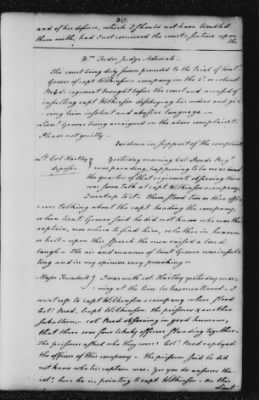 and of his defence, which I should not have troubled
them with, had I not conceived the court's
the
Wm Tudor Judge Advocate
The court being duly sworn proceeded to the trial of Lieut
Grover of capt Wilkinson's company in the 2d
Regt regiment brought before the court and accused of
capt Wilkinson disobeying his orders and gi-
ving him insolent and abusive language
Lieut Grover being arraigned on the above complaint
Pleads not guilty
Evidence in support of the complaint
Lt Col Hartley
deposes
Yesterday morning Col Reeds Regt
was parading, happening to be near
the quarter of that regiment, observing there
was some talk at capt Wilkinson's company,
I went up to it. There stood two or three offi-
cers talking about the capt leading the company,
when Lieut Grover said he did not know who was the
captain, nor where to find him, whether in heaven
or hell — upon this speech the men raised a loud
laugh — The air and manner of Lieut Grover was insult-
ing and in my opinion very provoking
Major Trumbull
I was with col Hartley yesterday mor-
ning at the time he has mentioned. I
went up to capt Wilkinson's company where stood
Col Reed, Capt Wilkinson the prisoner & another
Col Reed observing in good humour,
that there was four likely officers standing together.
The prisoner asked who they were? Col Reed replyed
the officers of this company. The prisoner said he did
not know who his captain was. Yes you do answers the
col, here he is, pointing to capt Wilkinson. On this
Lieut